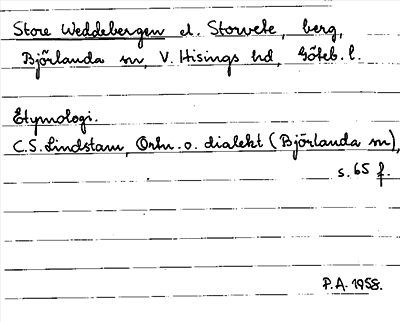 Store Weddebergen el. Storvete, berg,
Björlanda sn, V. Hisings hd, Göteb. l.
Etymologi.
C.S. Lindstam, Ortn. o. dialekt (Björlanda sn),
s. 65 f.
P.A. 1958.